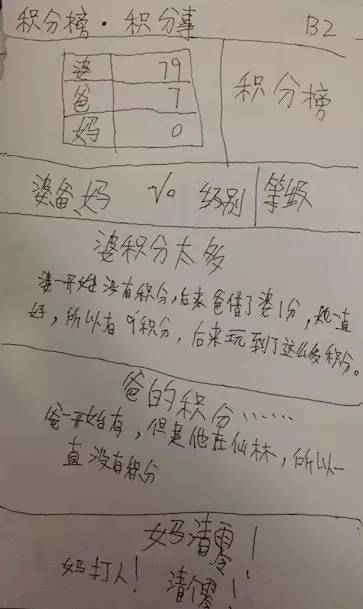 积分榜·积分事 B2
婆 79
爸 7
妈 0
积分榜
婆爸妈 级别 等级
婆积分太多
婆一开始没有积分,后来爸借了婆1分,她一直
好,所以有积分,后来玩到了这么多积分。
爸的积分……
爸一开始有,但是他在仙林,所以一
直没有积分
妈清零!
妈打人!清零!